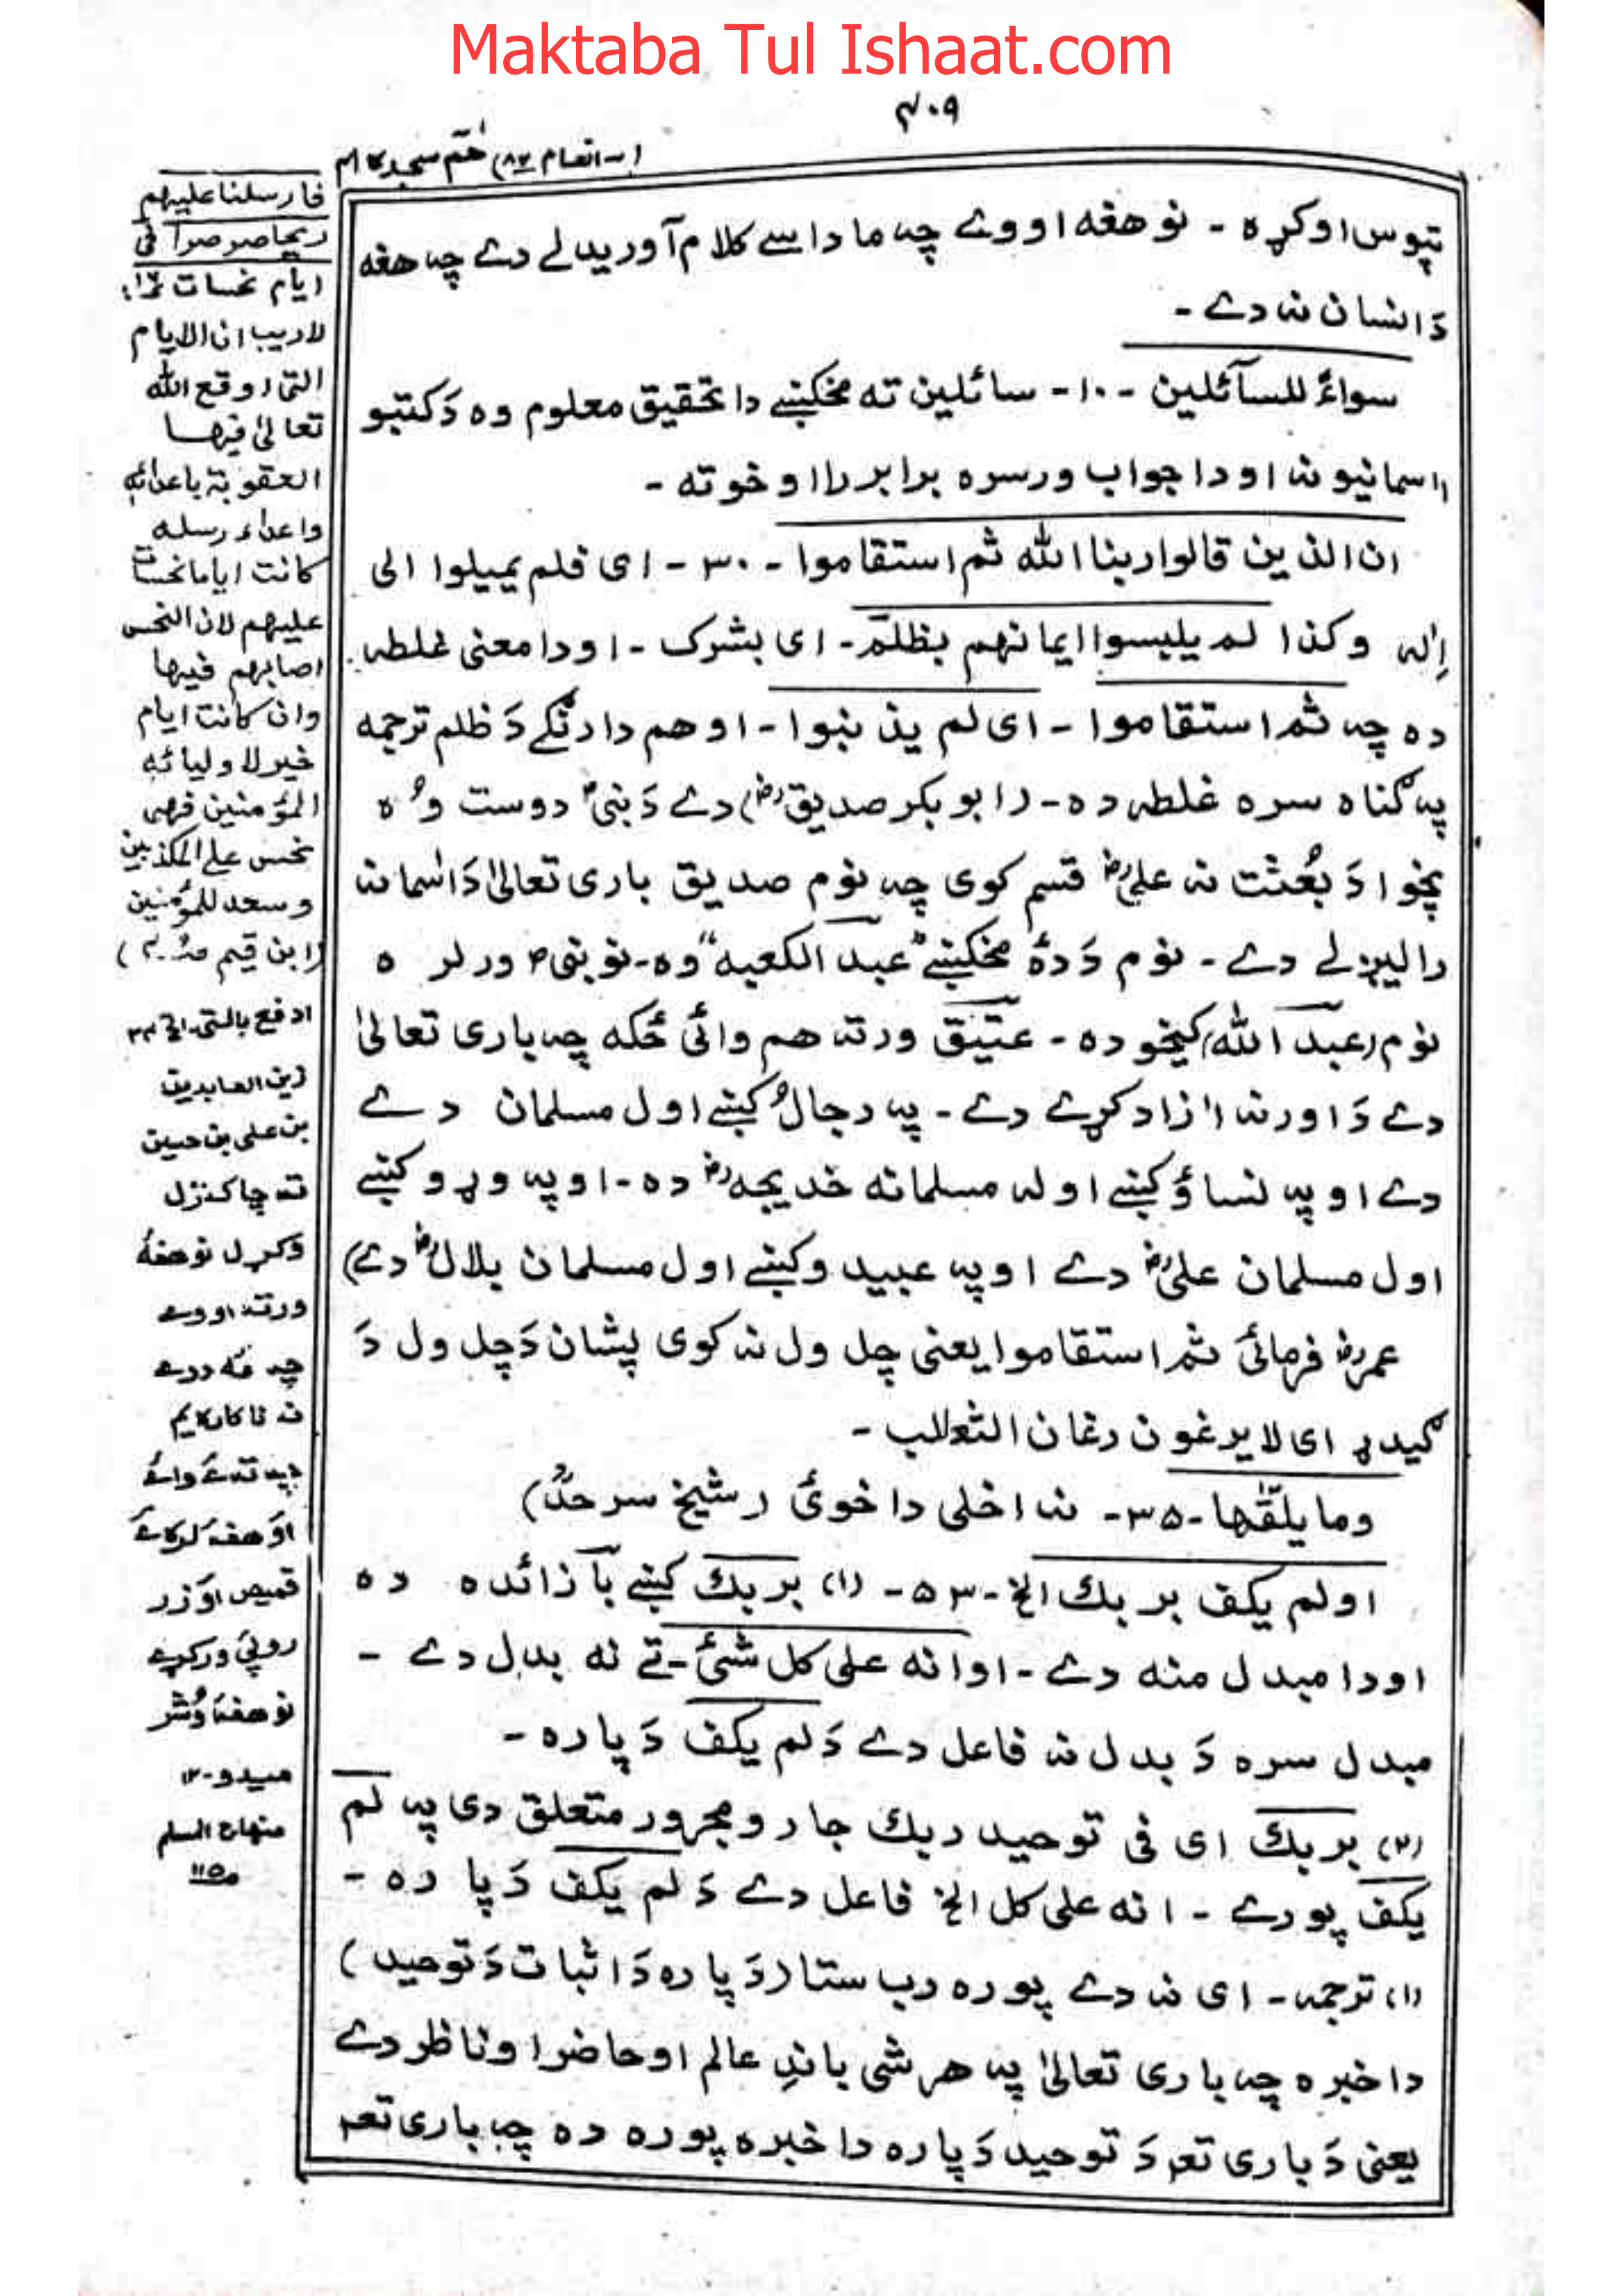 Maktaba Tul Ishaat.com
۴۰۹
(- انعام ۸۲) حٰم سجدہ ۴۱
تپوس اوکړه - نو هغه اووے چه ما داسے کلام آوریدلے دے چه هغه
دَ انسان نه دے -
سواءً للسآئلین - ۱۰ - سائلین ته مخکښے دا تحقیق معلوم وه دَ کتبو
اسمانیو نه او دا جواب ورسره برابر را اوخوته -
ان الذین قالوا ربنا الله ثم استقاموا - ۳۰ - ای فلم یمیلوا الی
اِلٰه وکذا لم یلبسوا ایمانهم بظلم - ای بشرک - او دا معنی غلطه
ده چه ثم استقاموا - ای لم یذنبوا - او هم دارنګے دَ ظلم ترجمه
په ګناه سره غلطه ده - (ابوبکر صدیق (رض) دے دَ نبی ؐ دوست وُه
پخوا دَ بُعثت نه علی رض قسم کوی چه نوم صدیق باری تعالیٰ دَ اٰسمانه
رالیږلے دے - نوم دَ دۀ مخکښے "عبد الکعبه" وه - نو نبی ؐ ورلره
نوم (عبد الله) کیخوده - عتیق ورته هم وائی ځکه چه باری تعالیٰ
دے دَ اور نه اٰزاد کړے دے - په رجالُ کښے اول مسلمان دے
دے او په نساؤ کښے اوله مسلمانه خدیجه رض ده - او په وړو کښے
اول مسلمان علی رض دے او په عبیدو کښے اول مسلمان بلال رض دے)
عمر رض فرمائی ثم استقاموا یعنی چل ول نه کوی پشان دَ چل ول دَ
ګیدړ ای لا یرغون رغان الثعلب -
وما یلقّٰها - ۳۵ - نه اخلی دا خوئ (شیخ سرحدؒ)
اولم یکف بربك الخ - ۵۳ - (۱) بربك کښے بَا زائده ده
او دا مبدل منه دے - او انه علی کل شئ - تے نه بدل دے -
مبدل سره دَ بدل نه فاعل دے دَ لم یکف دَپاره -
(۲) بربك ای فی توحید ربك جار و مجرور متعلق دی په لم
یکف پورے - انه علی کل الخ فاعل دے دَ لم یکف دَپاره -
(۱) ترجمه - ای نه دے پوره رب ستا (دَپاره دَ اثبات دَ توحید)
دا خبره چه باری تعالیٰ په هر شی باندِ عالم او حاضر او ناظر دے
یعنی دَ باری تعہ دَ توحید دَپاره دا خبره پوره ده چه باری تعہ
فارسلنا علیهم
ریحا صرصرا فی
ایام نحسات
لاریب ان الایام
التی اوقع الله
تعالیٰ فیها
العقوبة باعدائه
واعداء رسله
کانت ایاما نحسات
علیهم لان النحس
اصابهم فیها
وان کانت ایام
خیر لاولیائه
المؤمنین فهی
نحس علی المکذبین
وسعد للمؤمنین
(ابن قیم
ادفع بالتی الخ ۳۴
زین العابدین
بن علی بن حسین
ته چا کنزل
وکړل نو هغۀ
ورته اووے
چه
په تهٔ وائے
قمیص او زر
روپئ ورکړے
نو هغه
منهاج السلم